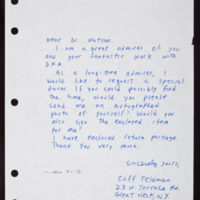 Dear Dr. Watson,
I am a great admirer of you
and your fantastic work with
DNA.
As a long-time admirer, I
would like to request a special
favor. If you could possibly find
the time, would you please
send me an autographed
photo of yourself? Would you
also sign the enclosed item
for me?
I have enclosed return postage.
Thank you very much.
Sincerely yours,
Cliff Feldman
23 W. Terrace Rd.
Great Neck, N.Y.